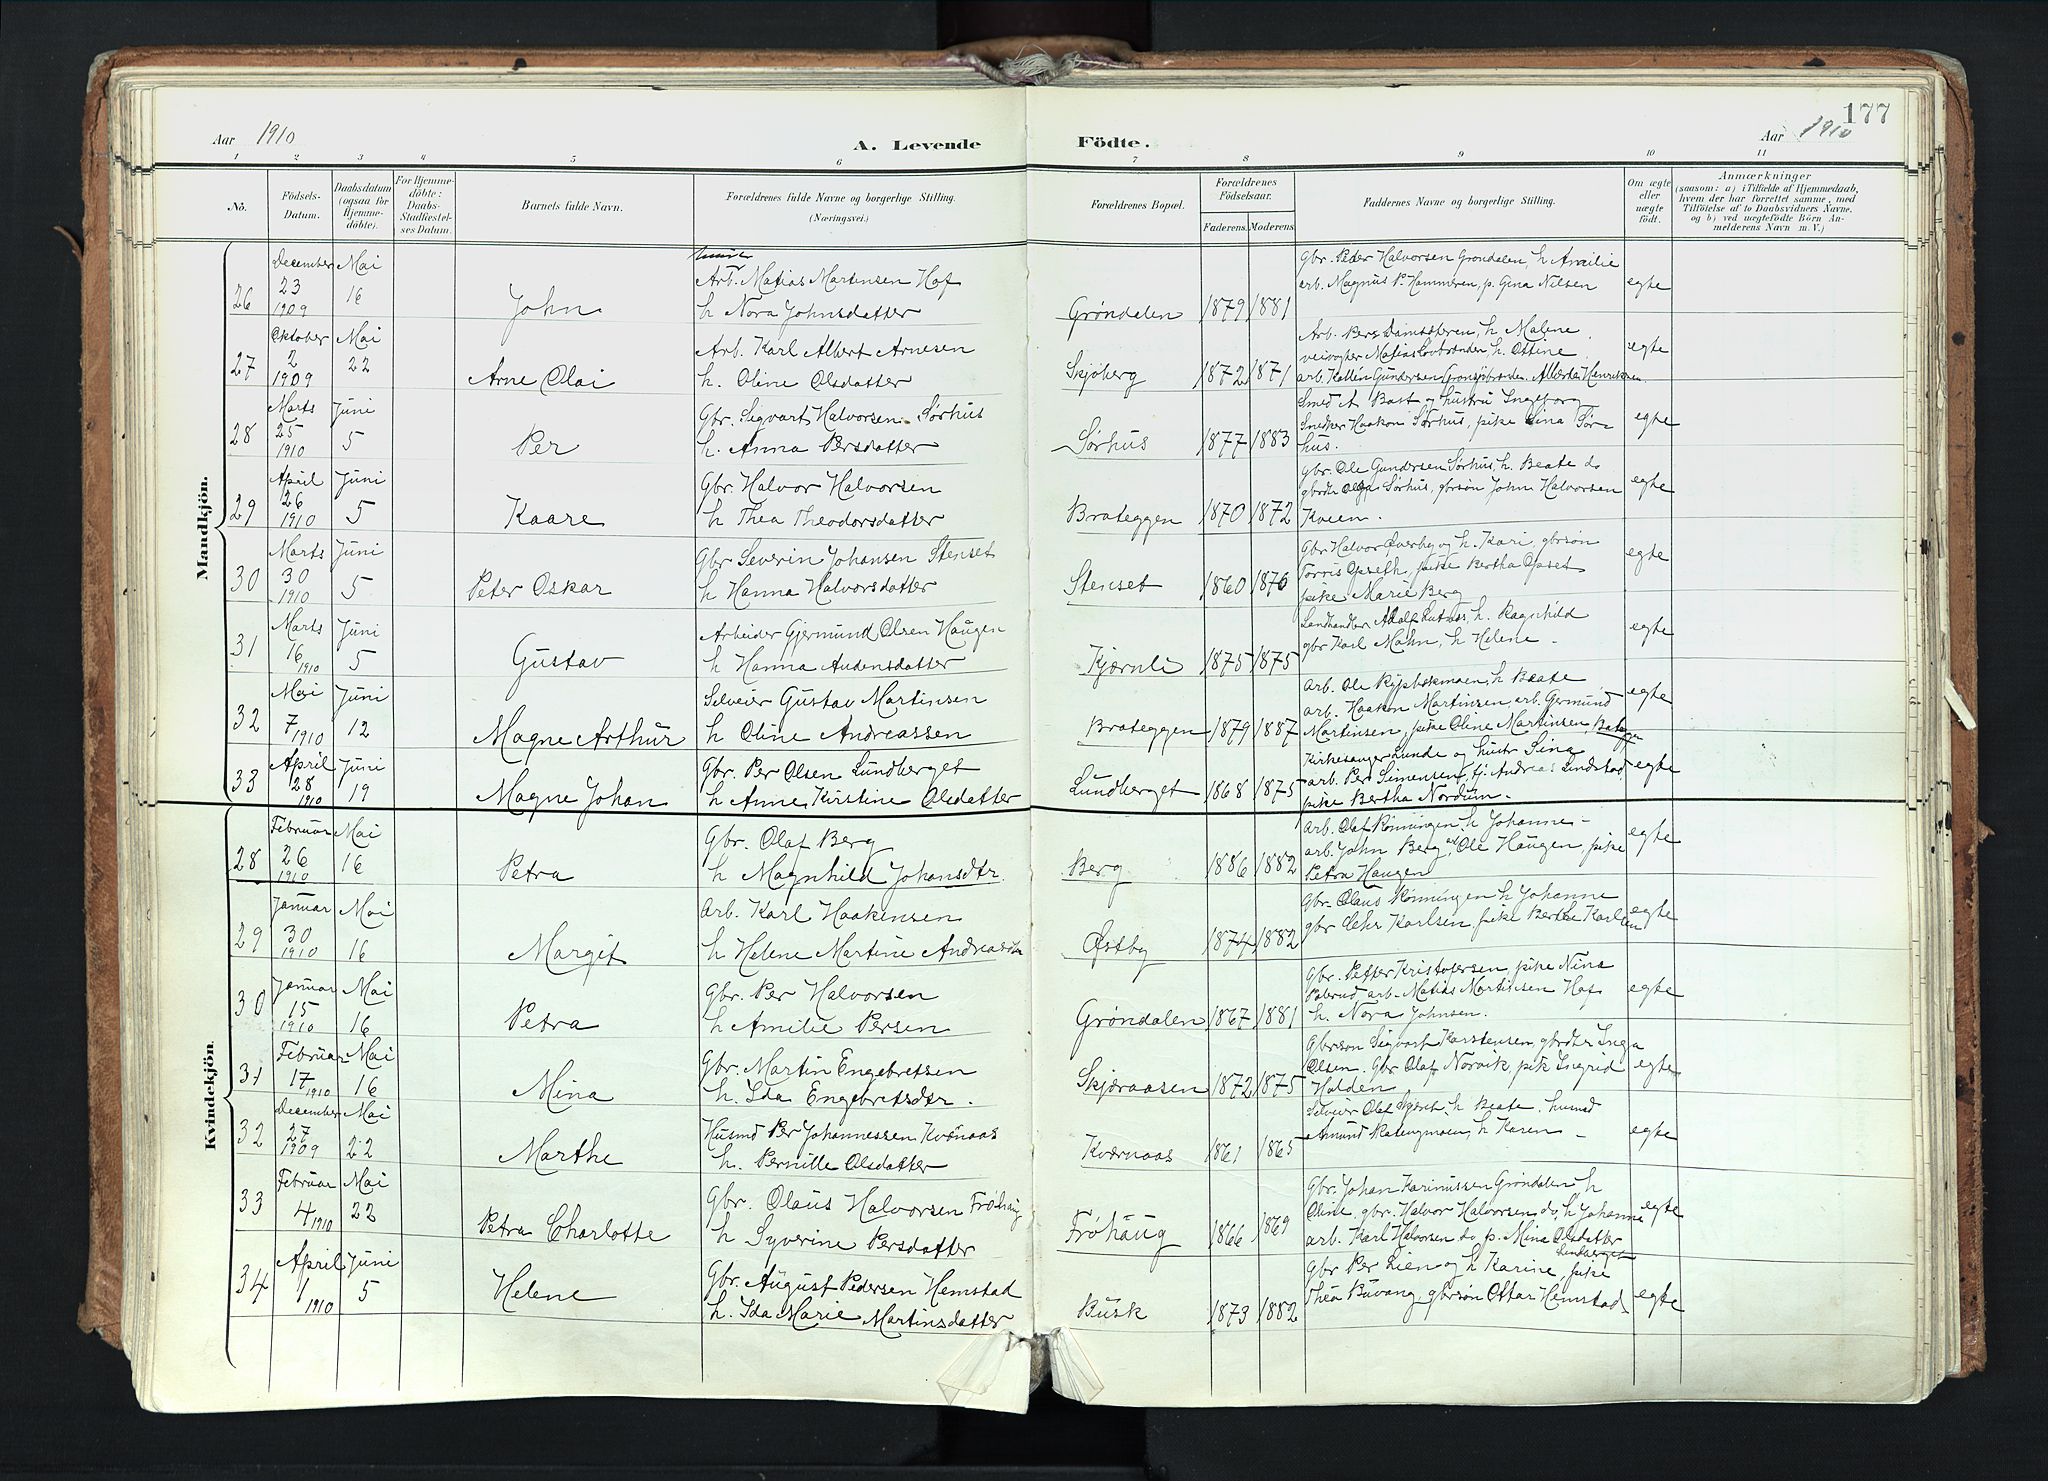 177
Aar 1910
A. Levende Födte.
Aar 1910
1 2 3 4 5 6 7 8 9 10 11
No.
Födsels-Datum.
Daabsdatum (ogsaa for Hjemmedöbte).
For Hjemmedöbte: Daabs-Stadfæstelses Datum.
Barnets fulde Navn.
Forældrenes fulde Navne og borgerlige Stilling. (Næringsvei.)
Forældrenes Bopæl.
Forældrenes Födselsaar. Faderens. Moderens.
Faddernes Navne og borgerlige Stilling.
Om ægte eller uægte födt.
Anmærkninger (saasom: a) i Tilfælde af Hjemmedaab, hvem der har forrettet samme, med Tilföielse af to Daabsvidners Navne, og b) ved uægtefödte Börn Anmelderens Navn m. V.)
Mandkjön.
26 December 23 1909 Mai 16 John
Arb. Matias Martinsen Hof
h Nora Johnsdatter
Grøndalen 1879 1881
Gbr. Peder Halvorsen Grøndalen, h Amilie
arb. Magnus P. Hammeren, p. Gina Nilsen
egte
27 Oktober 2 1909 Mai 22 Arne Olai
Arb. Karl Albert Arnesen
h. Oline Olsdatter
Skjøberg 1872 1871
Arb. Per Damsæteren, h. Malene
veivogter Matias, h. Ottine
arb. Gundersen
egte
28 Marts 25 1910 Juni 5 Per
Gbr. Sigvart Halvorsen Sørhus
h. Anna Persdatter
Sørhus 1877 1883
Smed A Bast og hustru Ingeborg
Snedker Haakon Sørhus, pike Lina Sør-
hus.
egte
29 April 26 1910 Juni 5 Kaare
Gbr. Halvor Halvorsen
h Thea Theodorsdatter
Brateggen 1870 1872
Gbr. Ole Gundersen Sørhus, h. Beate do
gbrdtr Olga Sørhus, gbrsøn John Halvorsen
Kveen.
egte
30 Marts 30 1910 Juni 5 Peter Oskar
Gbr Severin Johansen Stenset
h Hanna Halvorsdatter
Stenset 1860 1876
Gbr Halvor Øverby og h. Kari, gbrsøn
Torris Opseth, pike Bertha Opset
pike Marie Berg
egte
31 Marts 16 1910 Juni 5 Gustav
Arbeider Gjermund Olsen Haugen
h Hanna Audensdatter
Kjærnli 1875 1875
Landhandler Adolf, h. Ragnhild
gbr Karl Mohn, h Helene -
egte
32 Mai 7 1910 Juni 12 Magne Arthur
Selveier Gustav Martinsen
h Oline Andreassen
Brateggen 1879 1887
arb. Ole, h Beate
arb. Haakon Martinsen, arb. Germund
Martinsen, pike Oline Martinsen,
egte
33 April 28 1910 Juni 19 Magne Johan
Gbr. Per Olsen Lundberget
h Anne Kirstine Olsdatter
Lundberget 1868 1875
Kirkesanger Lunde og hustr Sina
arb. Per Simensen, tj. Andreas Lindstad
pike Bertha Nordum.
egte
Kvindekjön.
28 Februar 26 1910 Mai 16 Petra
Gbr. Olaf Berg
h Magnhild Johansdtr.
Berg 1886 1882
arb. Olaf Rønningen h Johanne -
arb. John Berg, Ole Haugen, pike
Petra Haugen
egte
29 Januar 30 1910 Mai 16 Margit
Arb. Karl Haakensen
h Helene Martine
Østby 1874 1882
Gbr. Olaus Rønningen h Johanne
gbr Karlsen, pike Berthe Karlsen
egte
30 Januar 15 1910 Mai 16 Petra
Gbr. Per Halvorsen
h Amilie Persen
Grøndalen 1867 1881
Gbr. Petter Kristofersen, pike Nina
arb. Matias Martinsen Hof
h. Nora Johnsen.
egte
31 Februar 17 1910 Mai 16 Mina
Gbr. Martin Engebretsen
h. Ida Engebretsdtr.
Skjæraasen 1872 1875
Gbrsøn Sigvart Karstensen, gbrdtr Inga
Olsen. Gbr Olaf Norvik, pik Ingrid
Halden
egte
32 December 27 1909 Mai 22 Marthe
Husmd Per Johannessen
h. Pernille Olsdatter
Kværnaas 1861 1865
Selveier Olaf, h Beate. husmd
Amund, h Karen -
egte
33 Februar 4 1910 Mai 22 Petra Charlotte
Gbr. Olaus Halvorsen Frøhaug
h Syverine Persdatter
Frøhaug 1866 1869
Gbr. Johan Karinussen Grøndalen h
Oline, gbr. Halvor Halvorsen do, h Johanne
arb. Karl Halvorsen do p. Mina Olsdatter
egte
34 April 1 1910 Juni 5 Helene
Gbr. August Pedersen Hemstad
h. Ida Marie Martinsdatter
Busk 1873 1882
Gbr Per Lien og h Karine, pike
Thea Buvang, gbrsøn Ottar Hemstad
egte